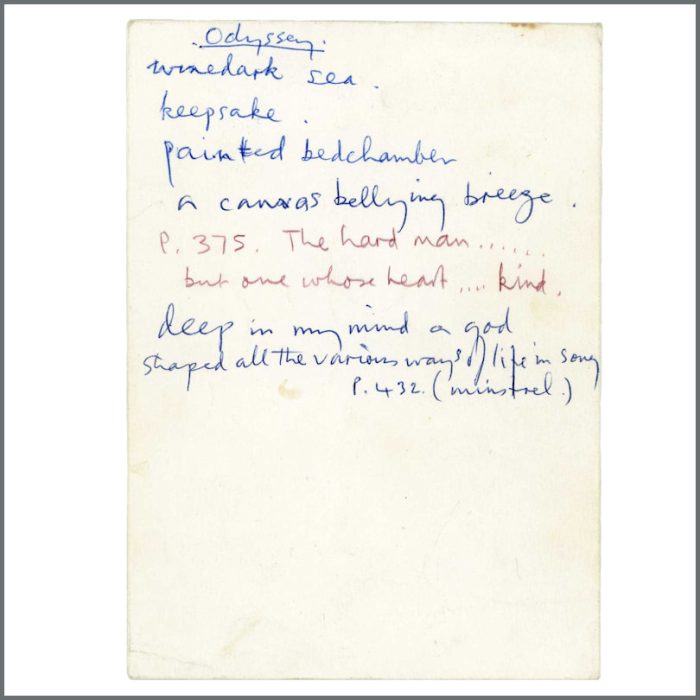 . Odyssey.
winedark sea .
keepsake .
painted bedchamber
a canvas bellying breeze .
P. 375. The hard man......
but one whose heart .... kind.
deep in my mind a god
shaped all the various ways of life in song
P. 432. (minstrel.)